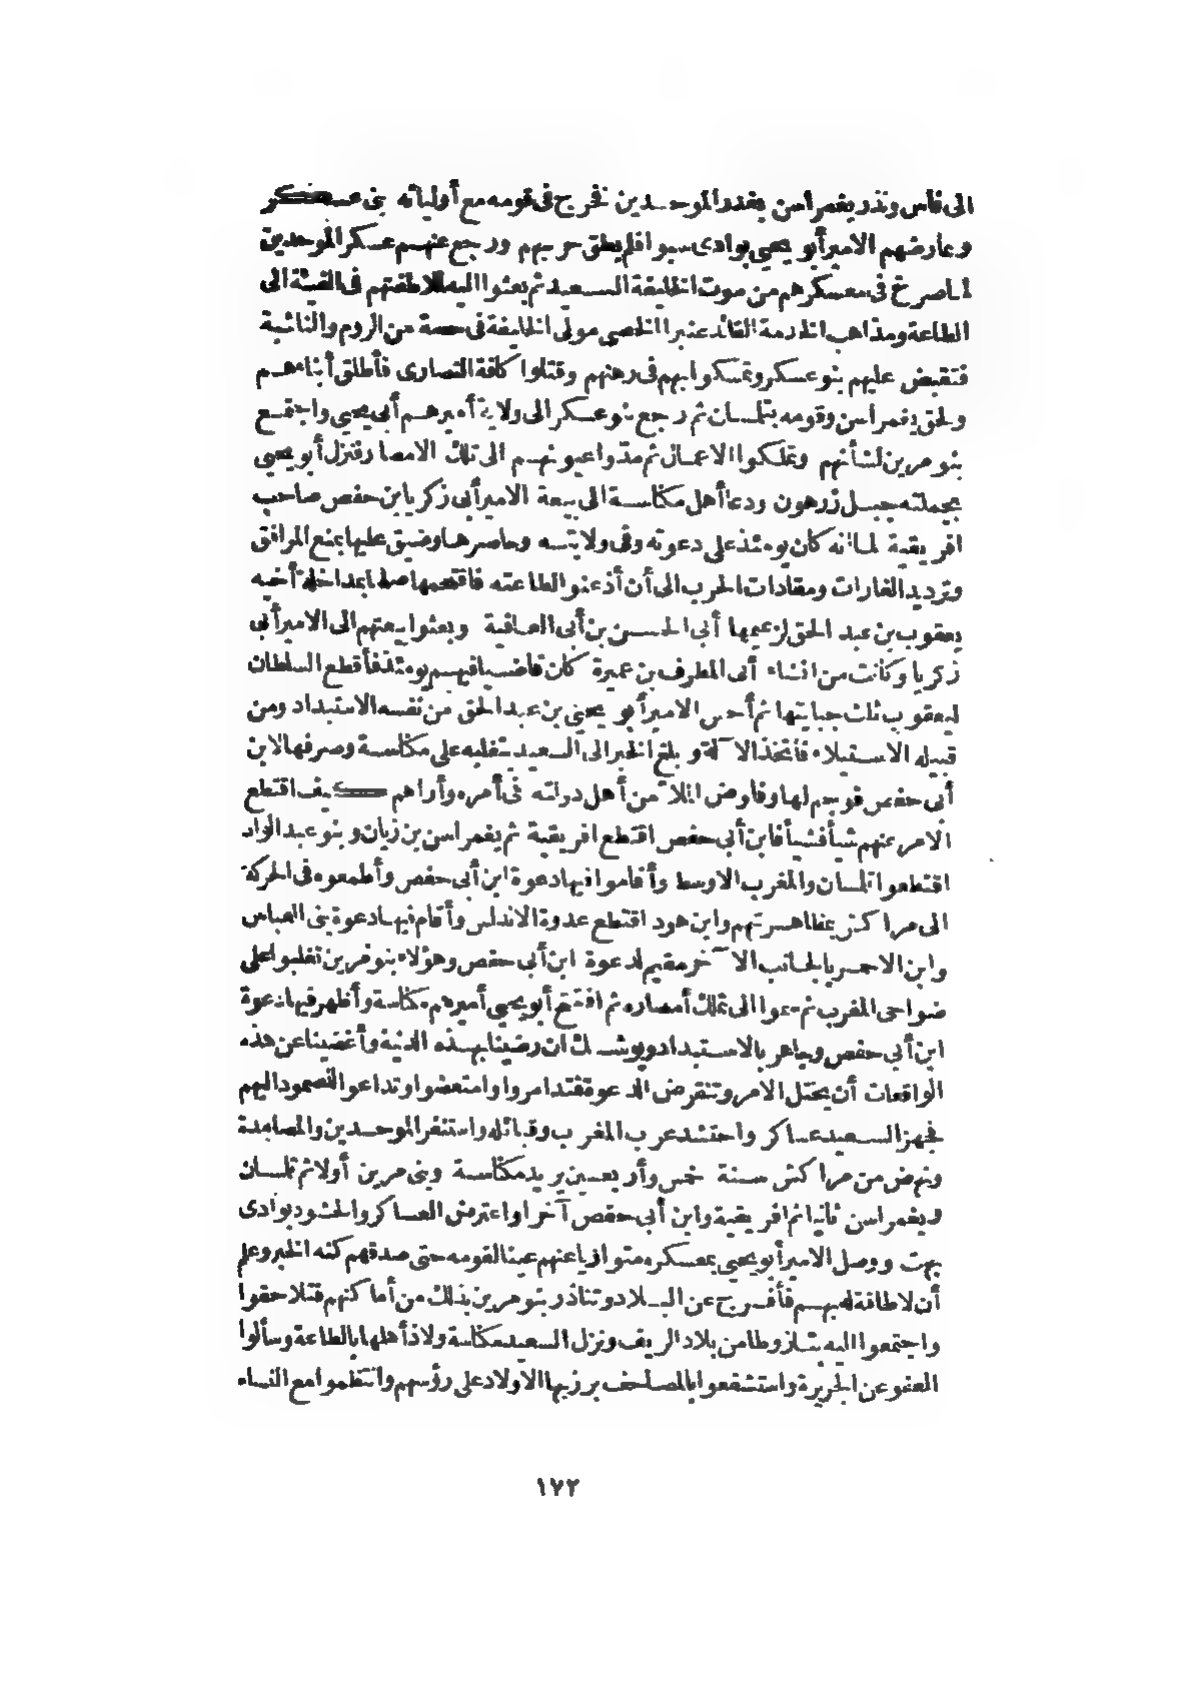 الى فاس ونذر يغمراسن بغدر الموحدين فخرج فى قومه مع أوليائه بنى عسكر
وعارضهم الامير أبو يحيى بوادى سبو افلم يطق حربهم ورجع عنهم عسكر الموحدين
لما صرخ فى معسكرهم من موت الخليفة السعيد ثم بعثوا اليه لملاطفتهم فى الفيئة الى
الطاعة ومذاهب الخدمة القائد عنبر الخصى مولى الخليفة فى حصة من الروم والناشبة
فتقبض عليهم بنو عسكر وتمسكوا بهم فى رهنهم وقتلوا كافة النصارى فأطلق أبناءهم
ولحق يغمراسن وقومه بتلمسان ثم رجع بنو عسكر الى ولاية أميرهم أبى يحيى واجتمع
بنو مرين لشأنهم وتملكوا الاعمال ثم مدّوا عيونهم الى تملك الامصار فنزل أبو يحيى
بجملته جبل زرهون ودعا أهل مكناسة الى بيعة الامير أبى زكريا بن حفص صاحب
افريقية لما انه كان يومئذ على دعوته وفى ولايته وحاصرها وضيق عليها بمنع المرافق
وترديد الغارات ومغادات الحرب الى أن أذعنوا لطاعته فافتتحها صلحا بمداخلة أخيه
يعقوب بن عبد الحق لزعيمها أبى الحسن بن أبى العافية وبعثوا بيعتهم الى الامير أبى
زكريا وكانت من انشاء أبى المطرف بن عميرة كان قاضيا فيهم يومئذ فأقطع السلطان
ليعقوب ثلث جبايتها ثم أحس الامير أبو يحيى بن عبد الحق من نفسه الاستبداد ومن
قبيله الاستيلاء فاتخذ الآلة وبلغ الخبر الى السعيد بتغلبه على مكناسة وصرفها لابن
أبى حفص فوجم لها وفاوض الملأ من أهل دولته فى أمره وأراهم كيف اقتطع
الامر عنهم شيأ فشيأ فابن أبى حفص اقتطع افريقية ثم يغمراسن بن زيان وبنو عبد الواد
اقتطعوا تلمسان والمغرب الاوسط وأقاموا فيها دعوة ابن أبى حفص وأطمعوه فى الحركة
الى مراكش بمظاهرتهم وابن هود اقتطع عدوة الاندلس وأقام فيها دعوة بنى العباس
وابن الاحمر بالجانب الآخر مقيم لدعوة ابن أبى حفص وهؤلاء بنو مرين تغلبوا على
ضواحى المغرب ثم سموا الى تملك أمصاره ثم افتتح أبو يحيى أميرهم مكناسة وأظهر فيها دعوة
ابن أبى حفص وجاهر بالاستبداد ويوشك ان رضينا بهذه الدنية وأغضينا عن هذه
الواقعات أن يختل الامر وتنقرض الدعوة فتدامروا وامتعضوا وتداعوا للصمود اليهم
فجهز السعيد عساكر واحتشد عرب المغرب وقبائله واستنفر الموحدين والمصامدة
ونهض من مراكش سنة خمس وأربعين يريد مكناسة وبنى مرين أولا ثم تلمسان
ويغمراسن ثانيا ثم افريقية وابن أبى حفص آخرا واعترض العساكر والحشود بوادى
بهت ووصل الامير أبو يحيى بمعسكره متواريا عنهم عينا لقومه حتى صدقهم كنه الخبر وعلم
أن لا طاقة له بهم فأفرج عن البلاد وتناذر بنو مرين بذلك من أماكنهم فتلاحقوا
واجتمعوا اليه بتازوطا من بلاد الريف ونزل السعيد مكناسة ولاذ أهلها بالطاعة وسألوا
العفو عن الجريرة واستشفعوا بالمصاحف برز بها الاولاد على رؤسهم وانتظموا مع النساء
١٧٢